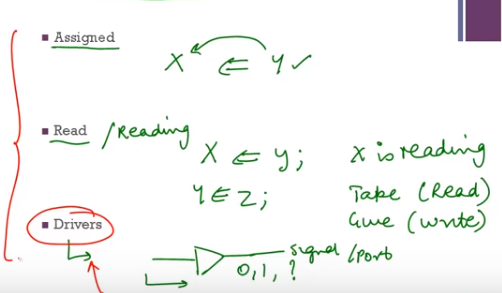 Assigned
X ⇐ Y ✓
Read /Reading
X ⇐ Y; X is reading
Y ⇐ Z; Take (Read)
Give (write)
Drivers
signal /port
0,1, ?